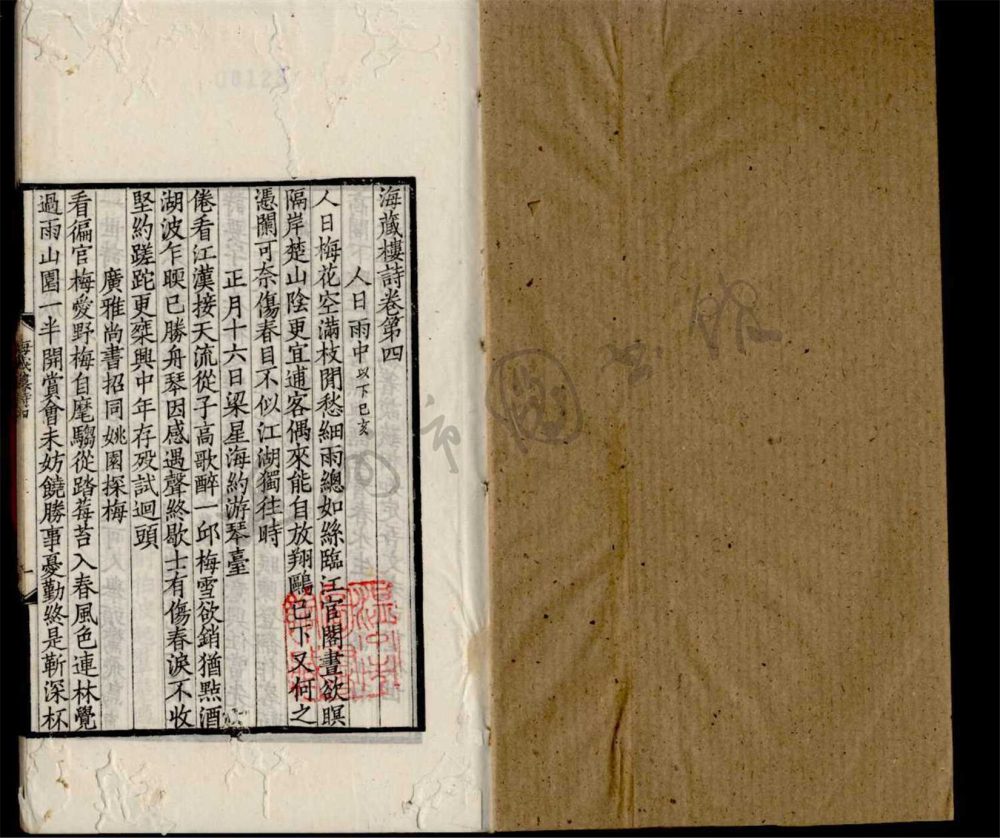 海藏樓詩卷第四
人日雨中以下己亥
人日梅花空滿枝閒愁細雨總如絲臨江官閣晝欲暝
隔岸楚山陰更宜逋客偶來能自放翔鷗已下又何之
憑闌可奈傷春目不似江湖獨往時
正月十六日梁星海約游琴臺
倦看江漢接天流從子高歌醉一邱梅雪欲銷猶點酒
湖波乍暝已勝舟琴因感遇聲終歇士有傷春淚不收
堅約蹉跎更棄興中年存歿試迴頭
廣雅尚書招同姚園探梅
看徧官梅愛野梅自麾騶從踏莓苔入春風色連林覺
過雨山園一半開賞會未妨饒勝事憂勤終是靳深杯
海藏樓詩四
一
圖書館